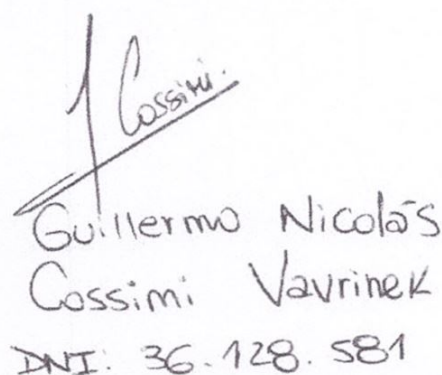 Cossimi.
Guillermo Nicolás
Cossimi Vavrinek
DNI: 36.128.581